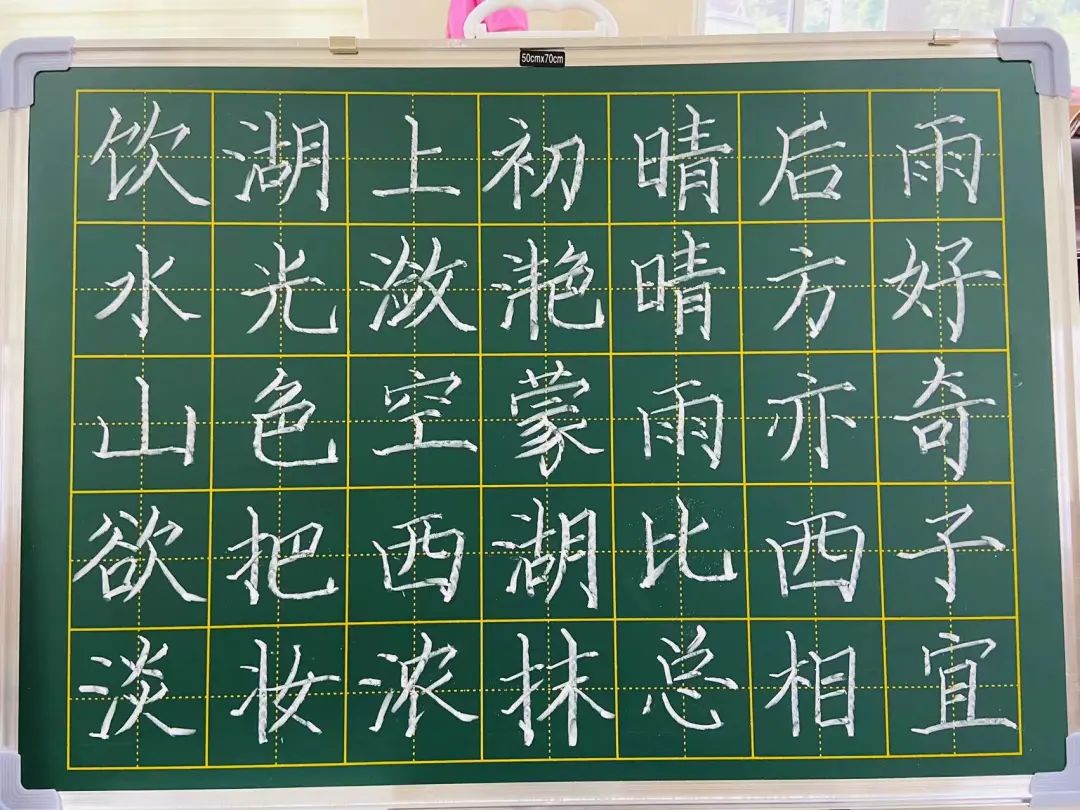 50cmx70cm
饮湖上初晴后雨
水光潋滟晴方好
山色空蒙雨亦奇
欲把西湖比西子
淡妆浓抹总相宜